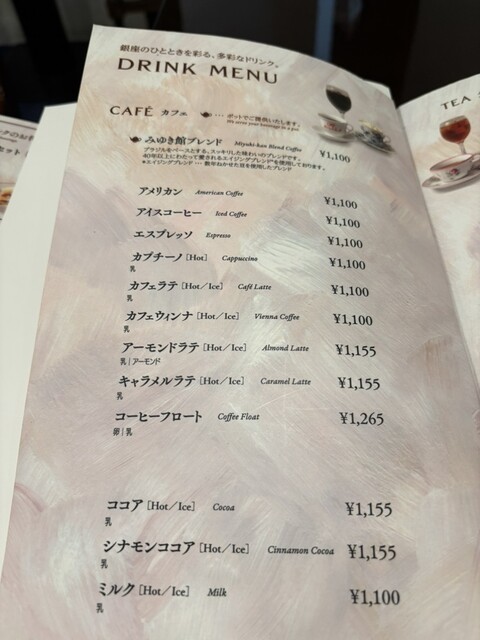 銀座のひとときを彩る、多彩なドリンク。
DRINK MENU
CAFÉ カフェ
･･･ ポットでご提供いたします。
We serve your beverage in a pot
みゆき館ブレンド Miyuki-kan Blend Coffee ¥1,100
ブラジルをベースとする、スッキリした味わいのブレンドです。
40年以上にわたって愛されるエイジングブレンド*を使用しております。
*エイジングブレンド･･･数年ねかせた豆を使用したブレンド
アメリカン American Coffee ¥1,100
アイスコーヒー Iced Coffee ¥1,100
エスプレッソ Espresso ¥1,100
カプチーノ [Hot] Cappuccino ¥1,100
乳
カフェラテ [Hot／Ice] Café Latte ¥1,100
乳
カフェウィンナ [Hot／Ice] Vienna Coffee ¥1,100
乳
アーモンドラテ [Hot／Ice] Almond Latte ¥1,155
乳｜アーモンド
キャラメルラテ [Hot／Ice] Caramel Latte ¥1,155
乳
コーヒーフロート Coffee Float ¥1,265
卵｜乳
ココア [Hot／Ice] Cocoa ¥1,155
乳
シナモンココア [Hot／Ice] Cinnamon Cocoa ¥1,155
乳
ミルク [Hot／Ice] Milk ¥1,100
乳
TEA
セット